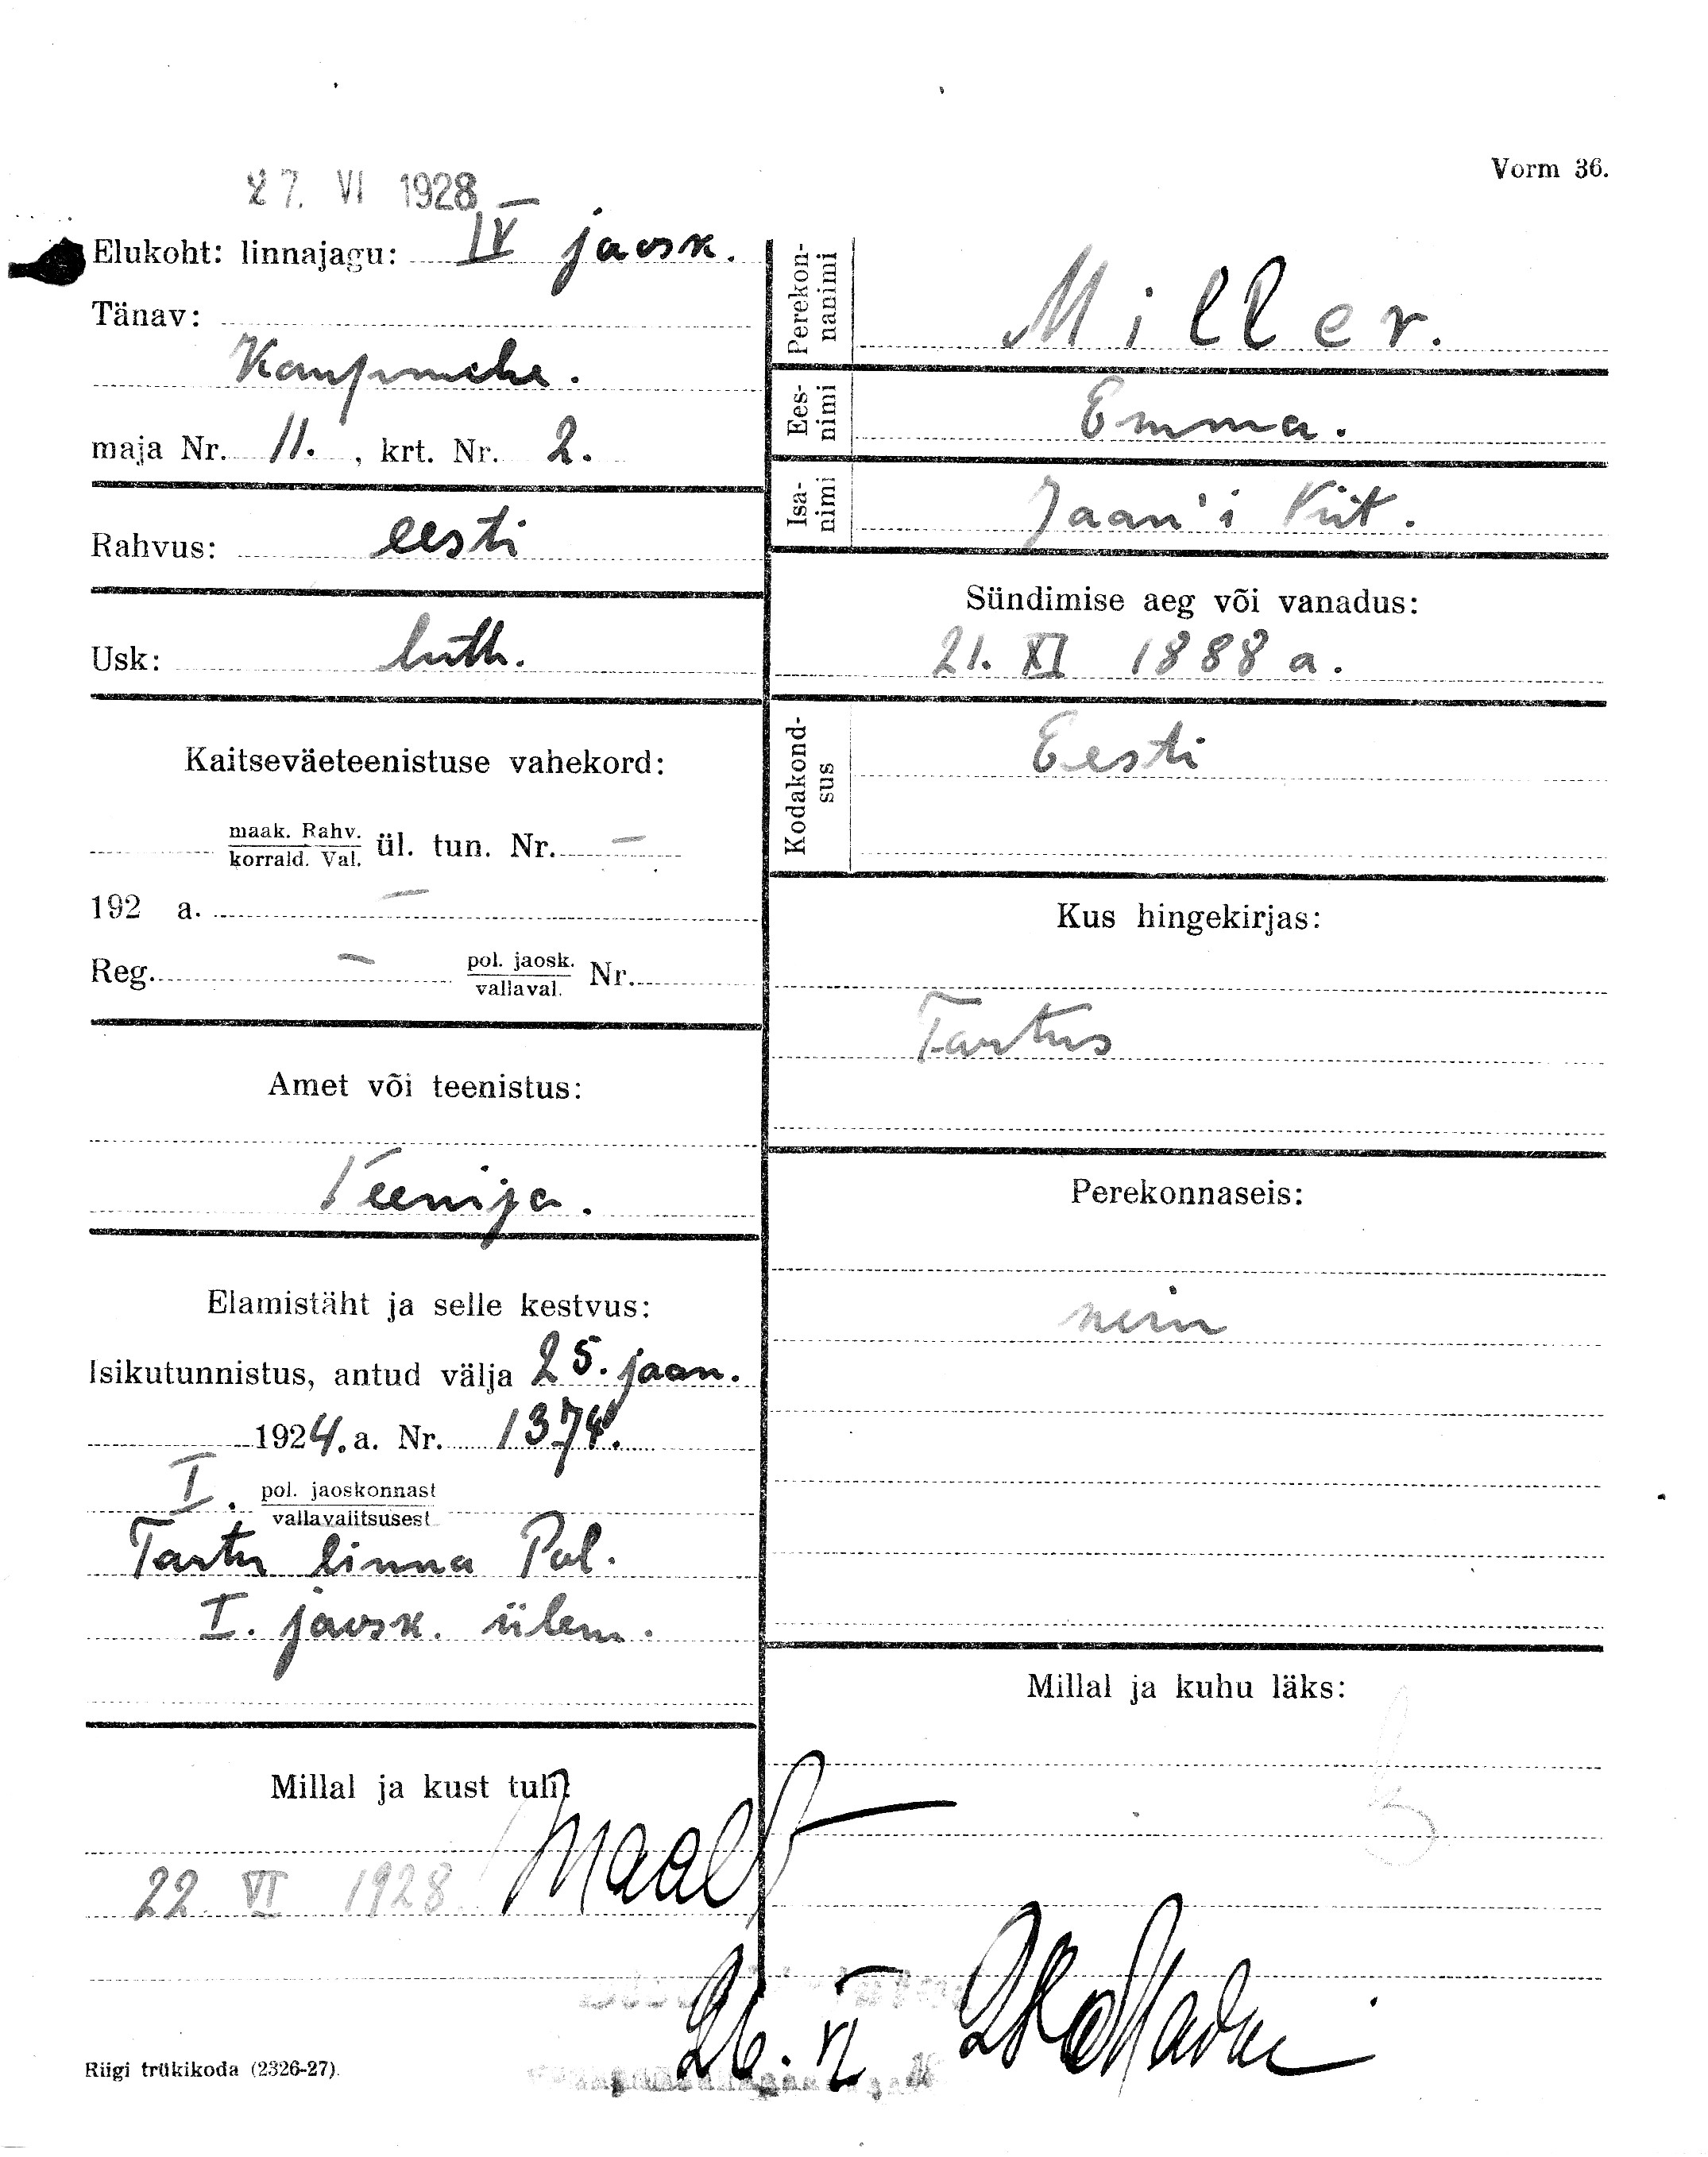 Vorm 36.
27. VI 1928
Elukoht: linnajagu: IV jaosk.
Tänav:
Kaupmehe.
maja Nr. 11. , krt. Nr. 2.
Rahvus: eesti
Usk: luth.
Kaitseväeteenistuse vahekord:
maak. Rahv.
korrald. Val. ül. tun. Nr. –
192 a. –
Reg. – pol. jaosk.
vallaval. Nr.
Amet või teenistus:
Teenija.
Elamistäht ja selle kestvus:
Isikutunnistus, antud välja 25. jaan.
1924. a. Nr. 1374.
I. pol. jaoskonnast
vallavalitsusest
Tartu linna Pol.
I. jaosk. ülem.
Millal ja kust tuli:
Maalt
22. VI 1928
Perekon-
nanimi
Miller.
Ees-
nimi
Emma.
Isa-
nimi
Jaan'i tüt.
Sündimise aeg või vanadus:
21. XI 1888 a.
Kodakond-
sus
Eesti
Kus hingekirjas:
Tartus
Perekonnaseis:
neiu
Millal ja kuhu läks:
26. VI
Riigi trükikoda (2326-27).